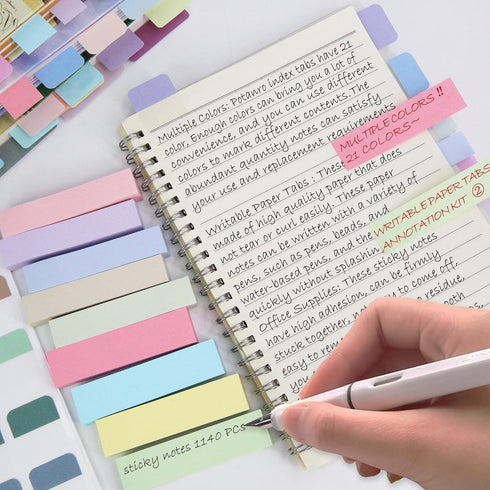 Multiple Colors: Potanro index tabs have 21
color. Enough colors can bring you a lot of
convenience, and you can use different
colors to mark different contents. The
abundant quantity notes can satisfy
your use and replacement requirements
Writable Paper Tabs : These
made of high quality paper that does
not tear or curl easily. These paper
notes can be written with a variety of
pens, such as pens, beads, and
water-based pens, and the
quickly without splashin
Office Supplies: These sticky notes
have high adhesion, can be firmly
stuck together, not easy to come off,
easy to remo residue,
smooth
you c
MULTIPLE COLORS !!
21 COLORS~
WRITABLE PAPER TABS
ANNOTATION KIT ②
sticky notes 1140 PCs